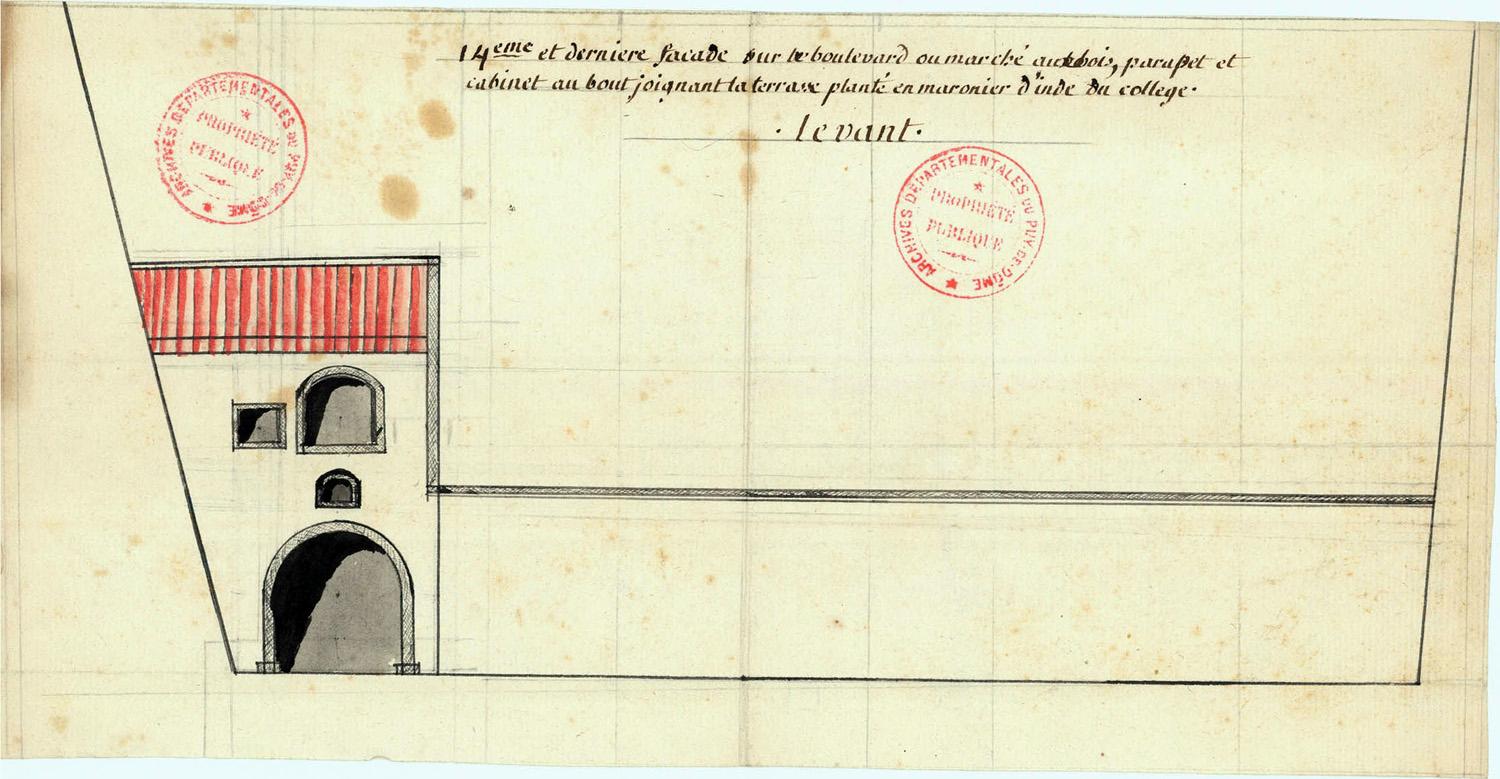 14eme et derniere facade sur le boulevard ou marché aux bois, parapet et
cabinet au bout joignant la terrasse planté en maronier d'inde du college.
. levant.
ARCHIVES DÉPARTEMENTALES DU PUY-DE-DÔME
PROPRIÉTÉ
PUBLIQUE
ARCHIVES DÉPARTEMENTALES DU PUY-DE-DÔME
PROPRIÉTÉ
PUBLIQUE